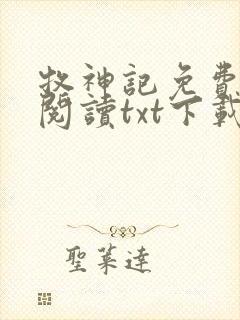 牧神記免費
閱讀txt下載
聖葉達